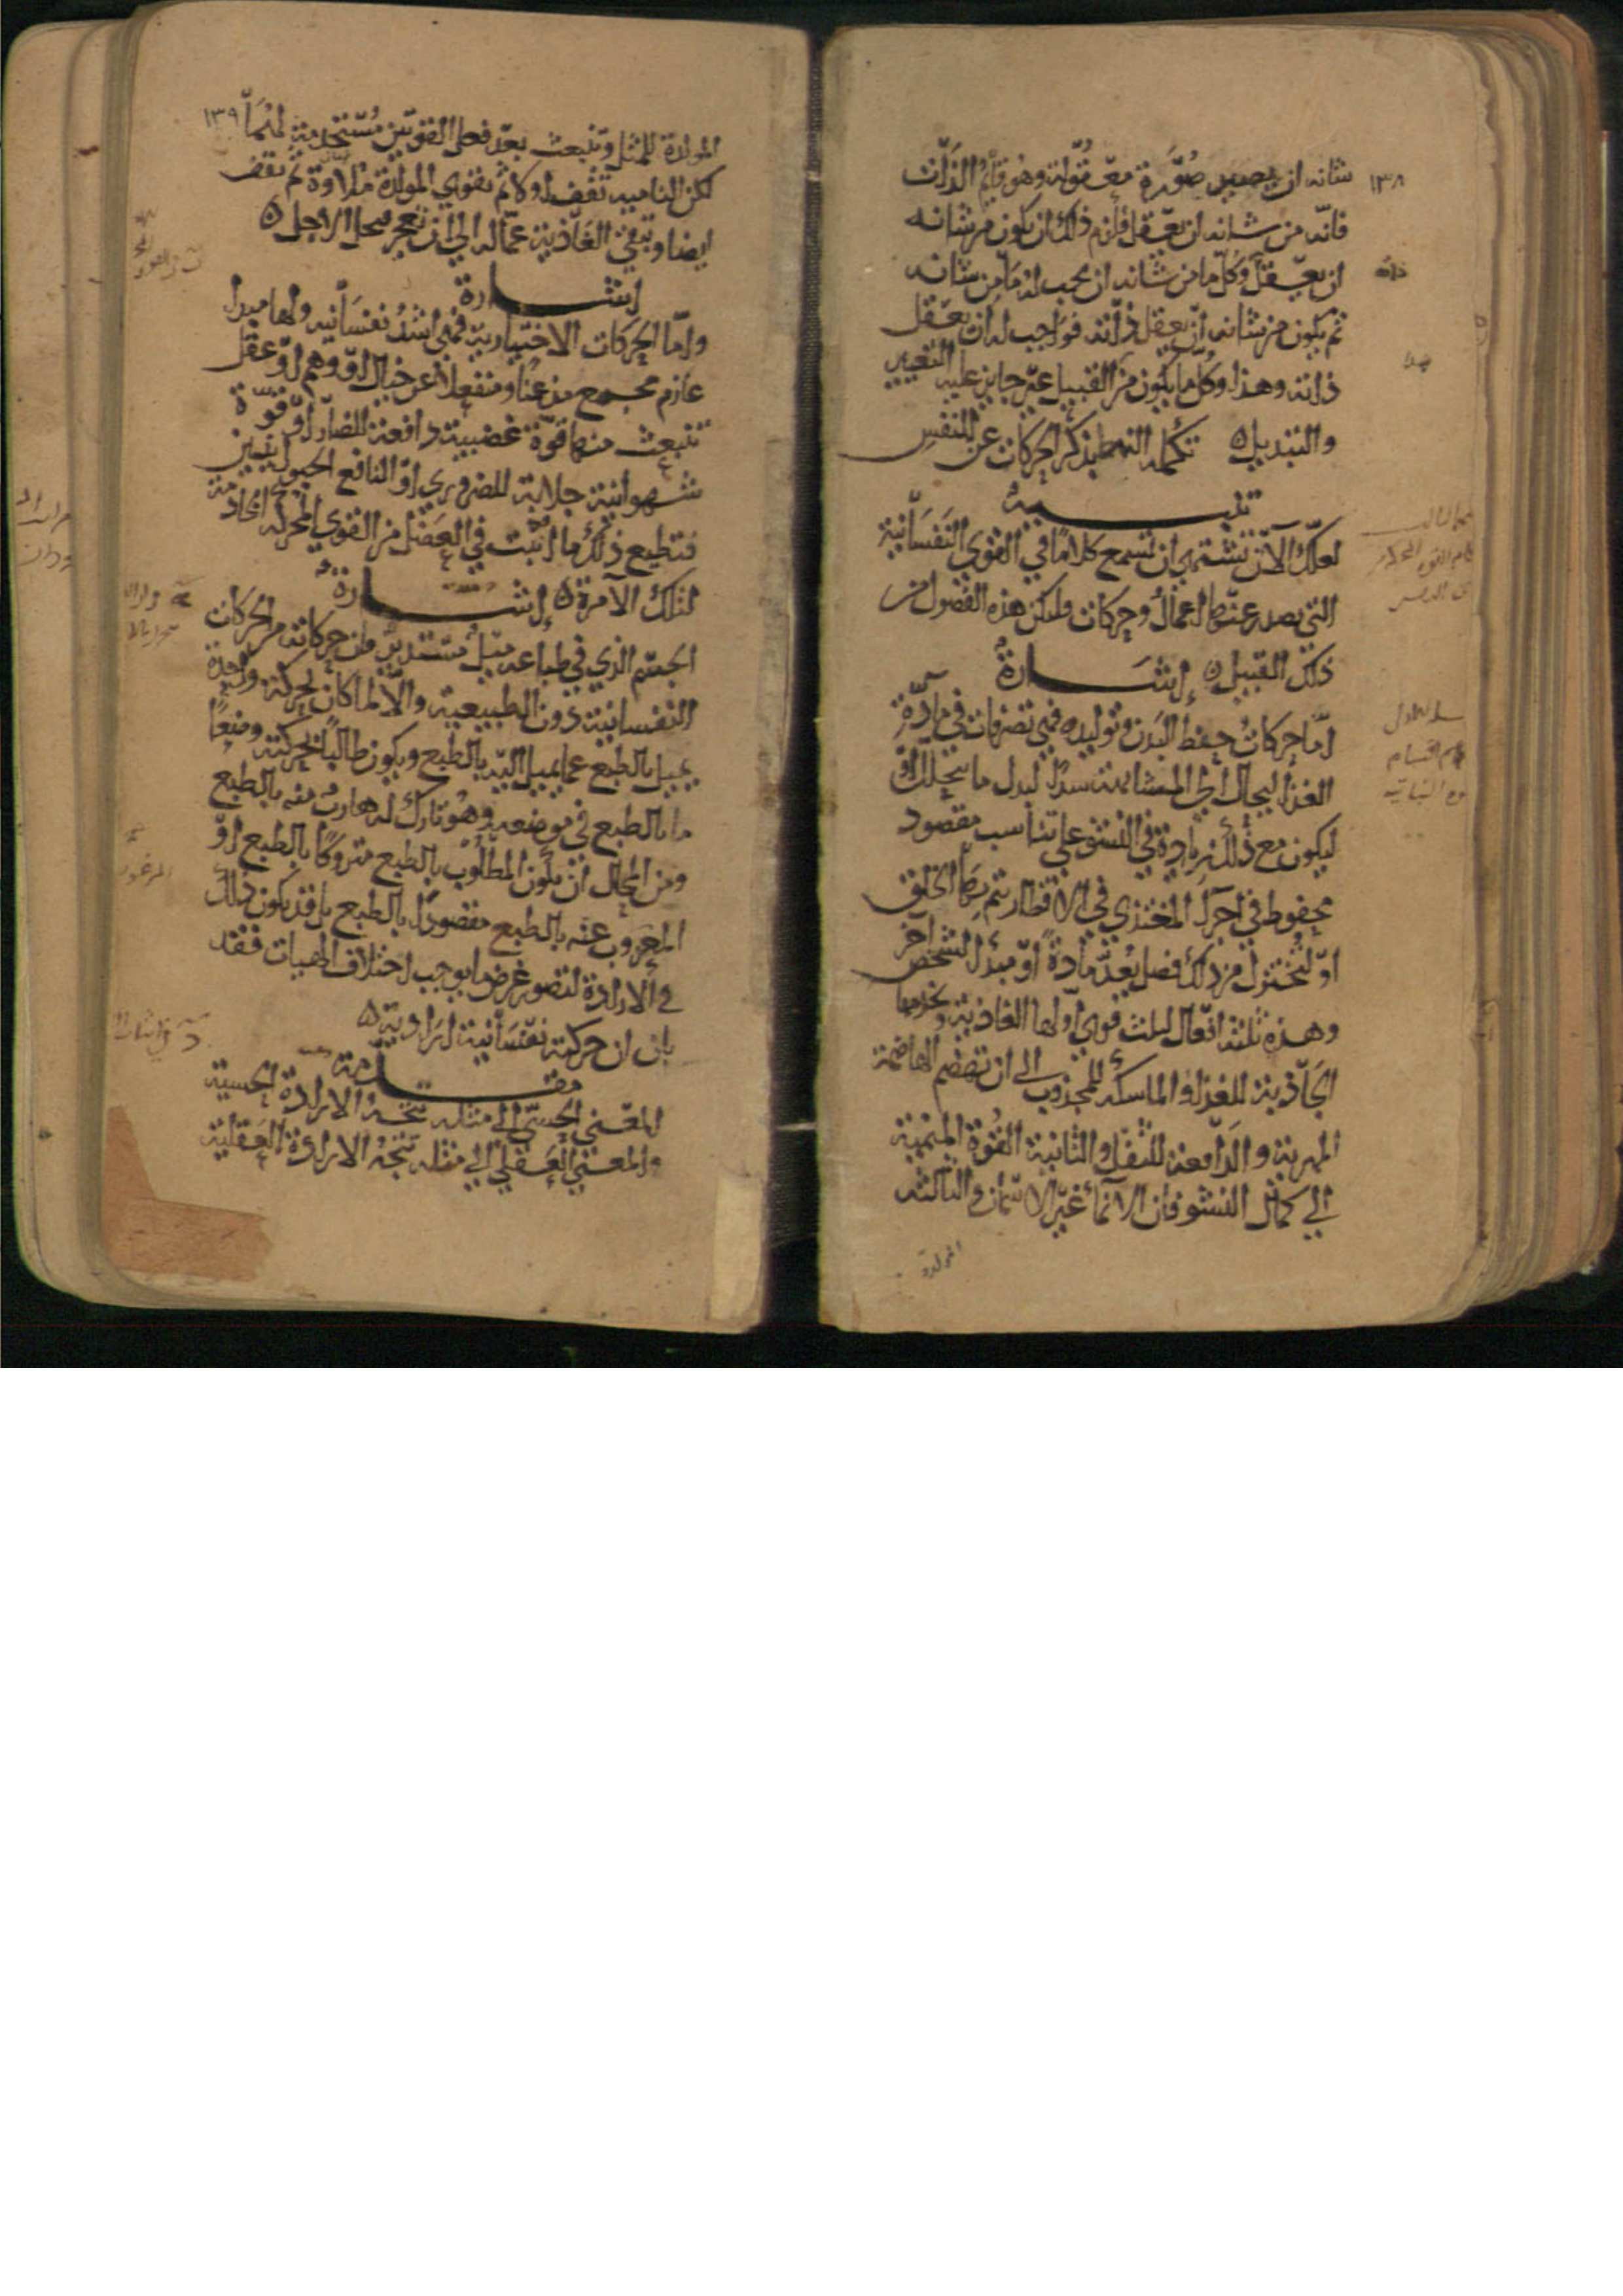 ١٣٨
شانه ان يصير صورة معقولة وهو قائم الذات
فانه من شانه ان يعقل فلزم ذلك ان يكون من شانه
ان يعقل وكل ما من شانه ان يجب له ما من شانه
ثم يكون من شانه ان يعقل ذاته فواجب له ان يعقل
ذاته وهذا وكل ما يكون من القبيل غير جايز عليه التغيير
والتبديل ه تكملة النمط بذكر الحركات عن النفس
تنبيه
لعلك الآن تشتهي ان تسمع كلاما في القوي النفسانية
التي يصدر عنها اعمال وحركات ولتكن هذه الفصول من
ذلك القبيل ه إشارة
اما حركات حفظ البدن وتوليده فهي تصرفات في مادة
الغذا ليحال الي المشابهة سدا لبدل ما يتحلل او
ليكون مع ذلك زيادة في النشو علي تناسب مقصود
محفوظ في اجزا المغتذي في الاقطار يتم بها الخلق
او لتختزل من ذلك فضل يعد مادة او مبدأ لشخص آخر
وهذه ثلثة افعال لثلث قوي اولها الغاذية وتخدمها
الجاذبة للغذا والماسكه للمجذوب الى ان تهضم الهاضمة
المهرية والدافعة للثفل والثانية القوة المنمية
الي كمال النشو فان الانماء غير الاسمان والثالثه
المولدة
١٣٩
المولدة للمثل وتنبعث بعد فعل القوتين مستخدمة لهما
لكن الناميه تقف اولا ثم تقوي المولدة ملاوة ثم تقف
ايضا وتبقي الغاذية عمالة الي ان تعجز فيحل الاجل ه
إشارة
واما الحركات الاختيارية فهي اشد نفسانيه ولها مبدا
عازم مجمع مذعنا ومنفعلا عن خيال او وهم او عقل
تنبعث منها قوة غضبية دافعة للضار او قوة
شهوانية جلابة للضروري او النافع الحيوانيين
فتطيع ذلك ما انبث في العضل من القوي المحركه الخادمة
لتلك الآمرة ه إشارة
الجسم الذي في طباعه ميل مستدير فان حركاته من الحركات
النفسانية دون الطبيعية والا لما كان بحركة واحدة
يميل بالطبع عما يميل اليه بالطبع ويكون طالبا بحركته وضعا
ما بالطبع في موضعه وهو تارك له هارب منه بالطبع
ومن المحال ان يكون المطلوب بالطبع متروكا بالطبع او
المهروب عنه بالطبع مقصودا بالطبع بل قد يكون ذلك
في الارادة لتصور غرض ما يوجب اختلاف الهيات فقد
بان ان حركته نفسانية ارادية ه
مقدمة
المعني الحسي الي مثله تتجه الارادة الحسية
والمعني العقلي الي مثله تتجه الارادة العقلية